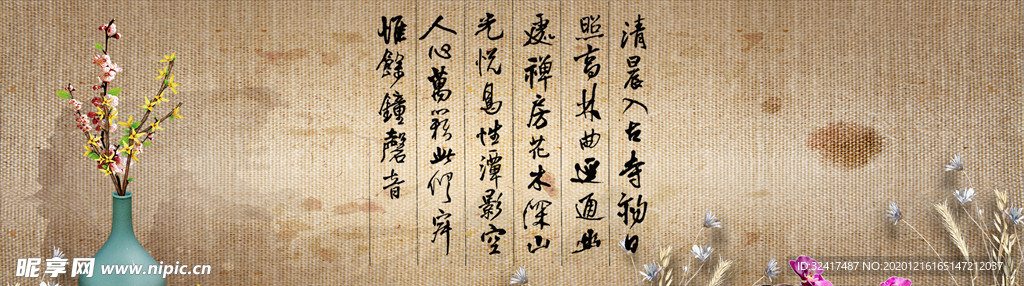 清晨入古寺初日
照高林曲逕通幽
處禪房花木深山
光悅鳥性潭影空
人心萬籟此俱寂
惟餘鐘磬音
昵享网 www.nipic.cn
ID:32417487 NO:20201216165147212037